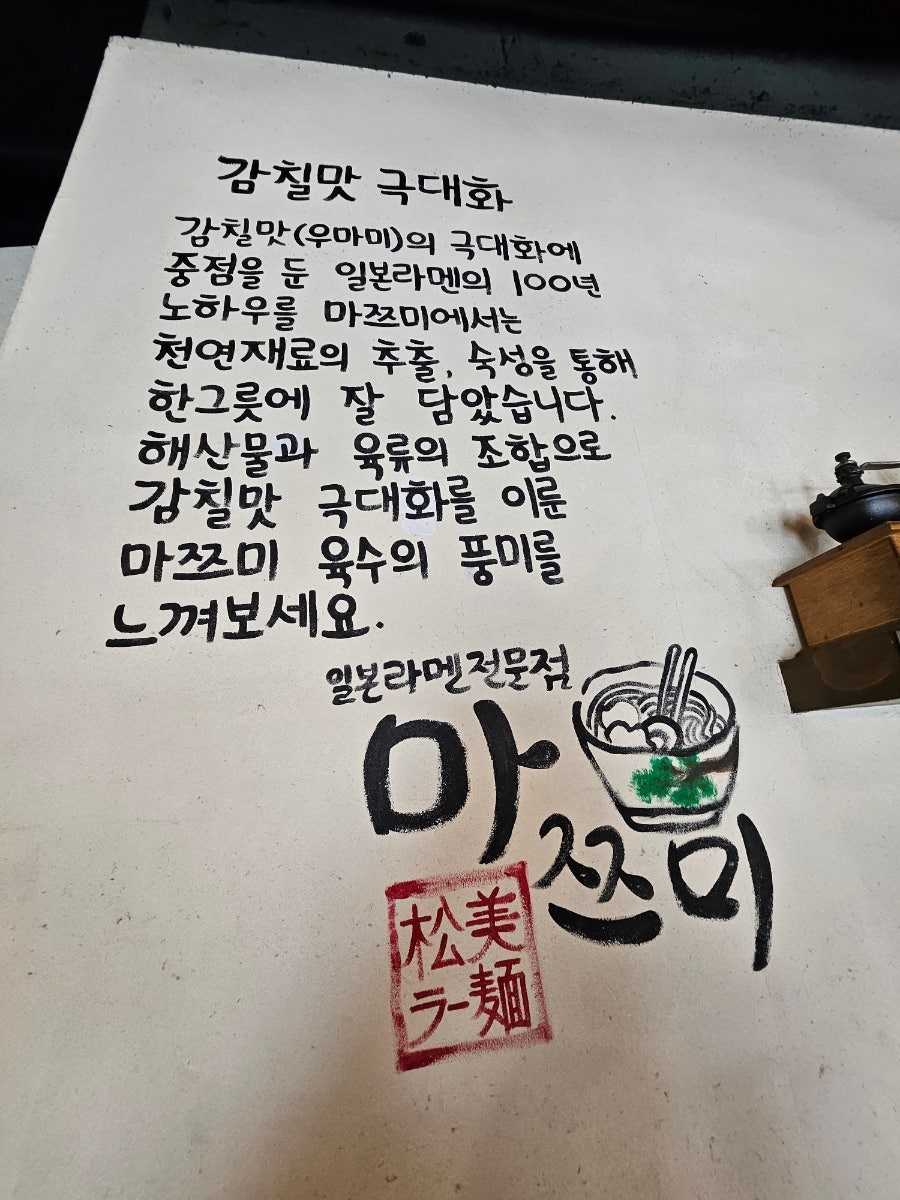 감칠맛 극대화
감칠맛(우마미)의 극대화에
중점을 둔 일본라멘의 100년
노하우를 마쯔미에서는
천연재료의 추출, 숙성을 통해
한그릇에 잘 담았습니다.
해산물과 육류의 조합으로
감칠맛 극대화를 이룬
마쯔미 육수의 풍미를
느껴보세요.
일본라멘전문점
마쯔미
松美
ラー麺